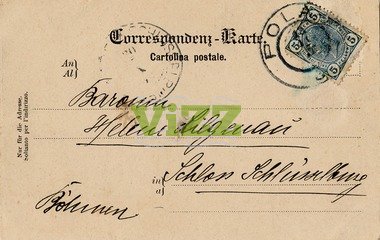 Correspondenz-Karte.
Cartolina postale.
POLA
5 5
An/
Al
Baronin
Helene Lilgenau
ViZZ
in/
a
Schloss Schlüsselburg
Böhmen
Nur für die Adresse.
Soltanto per l'indirizzo.